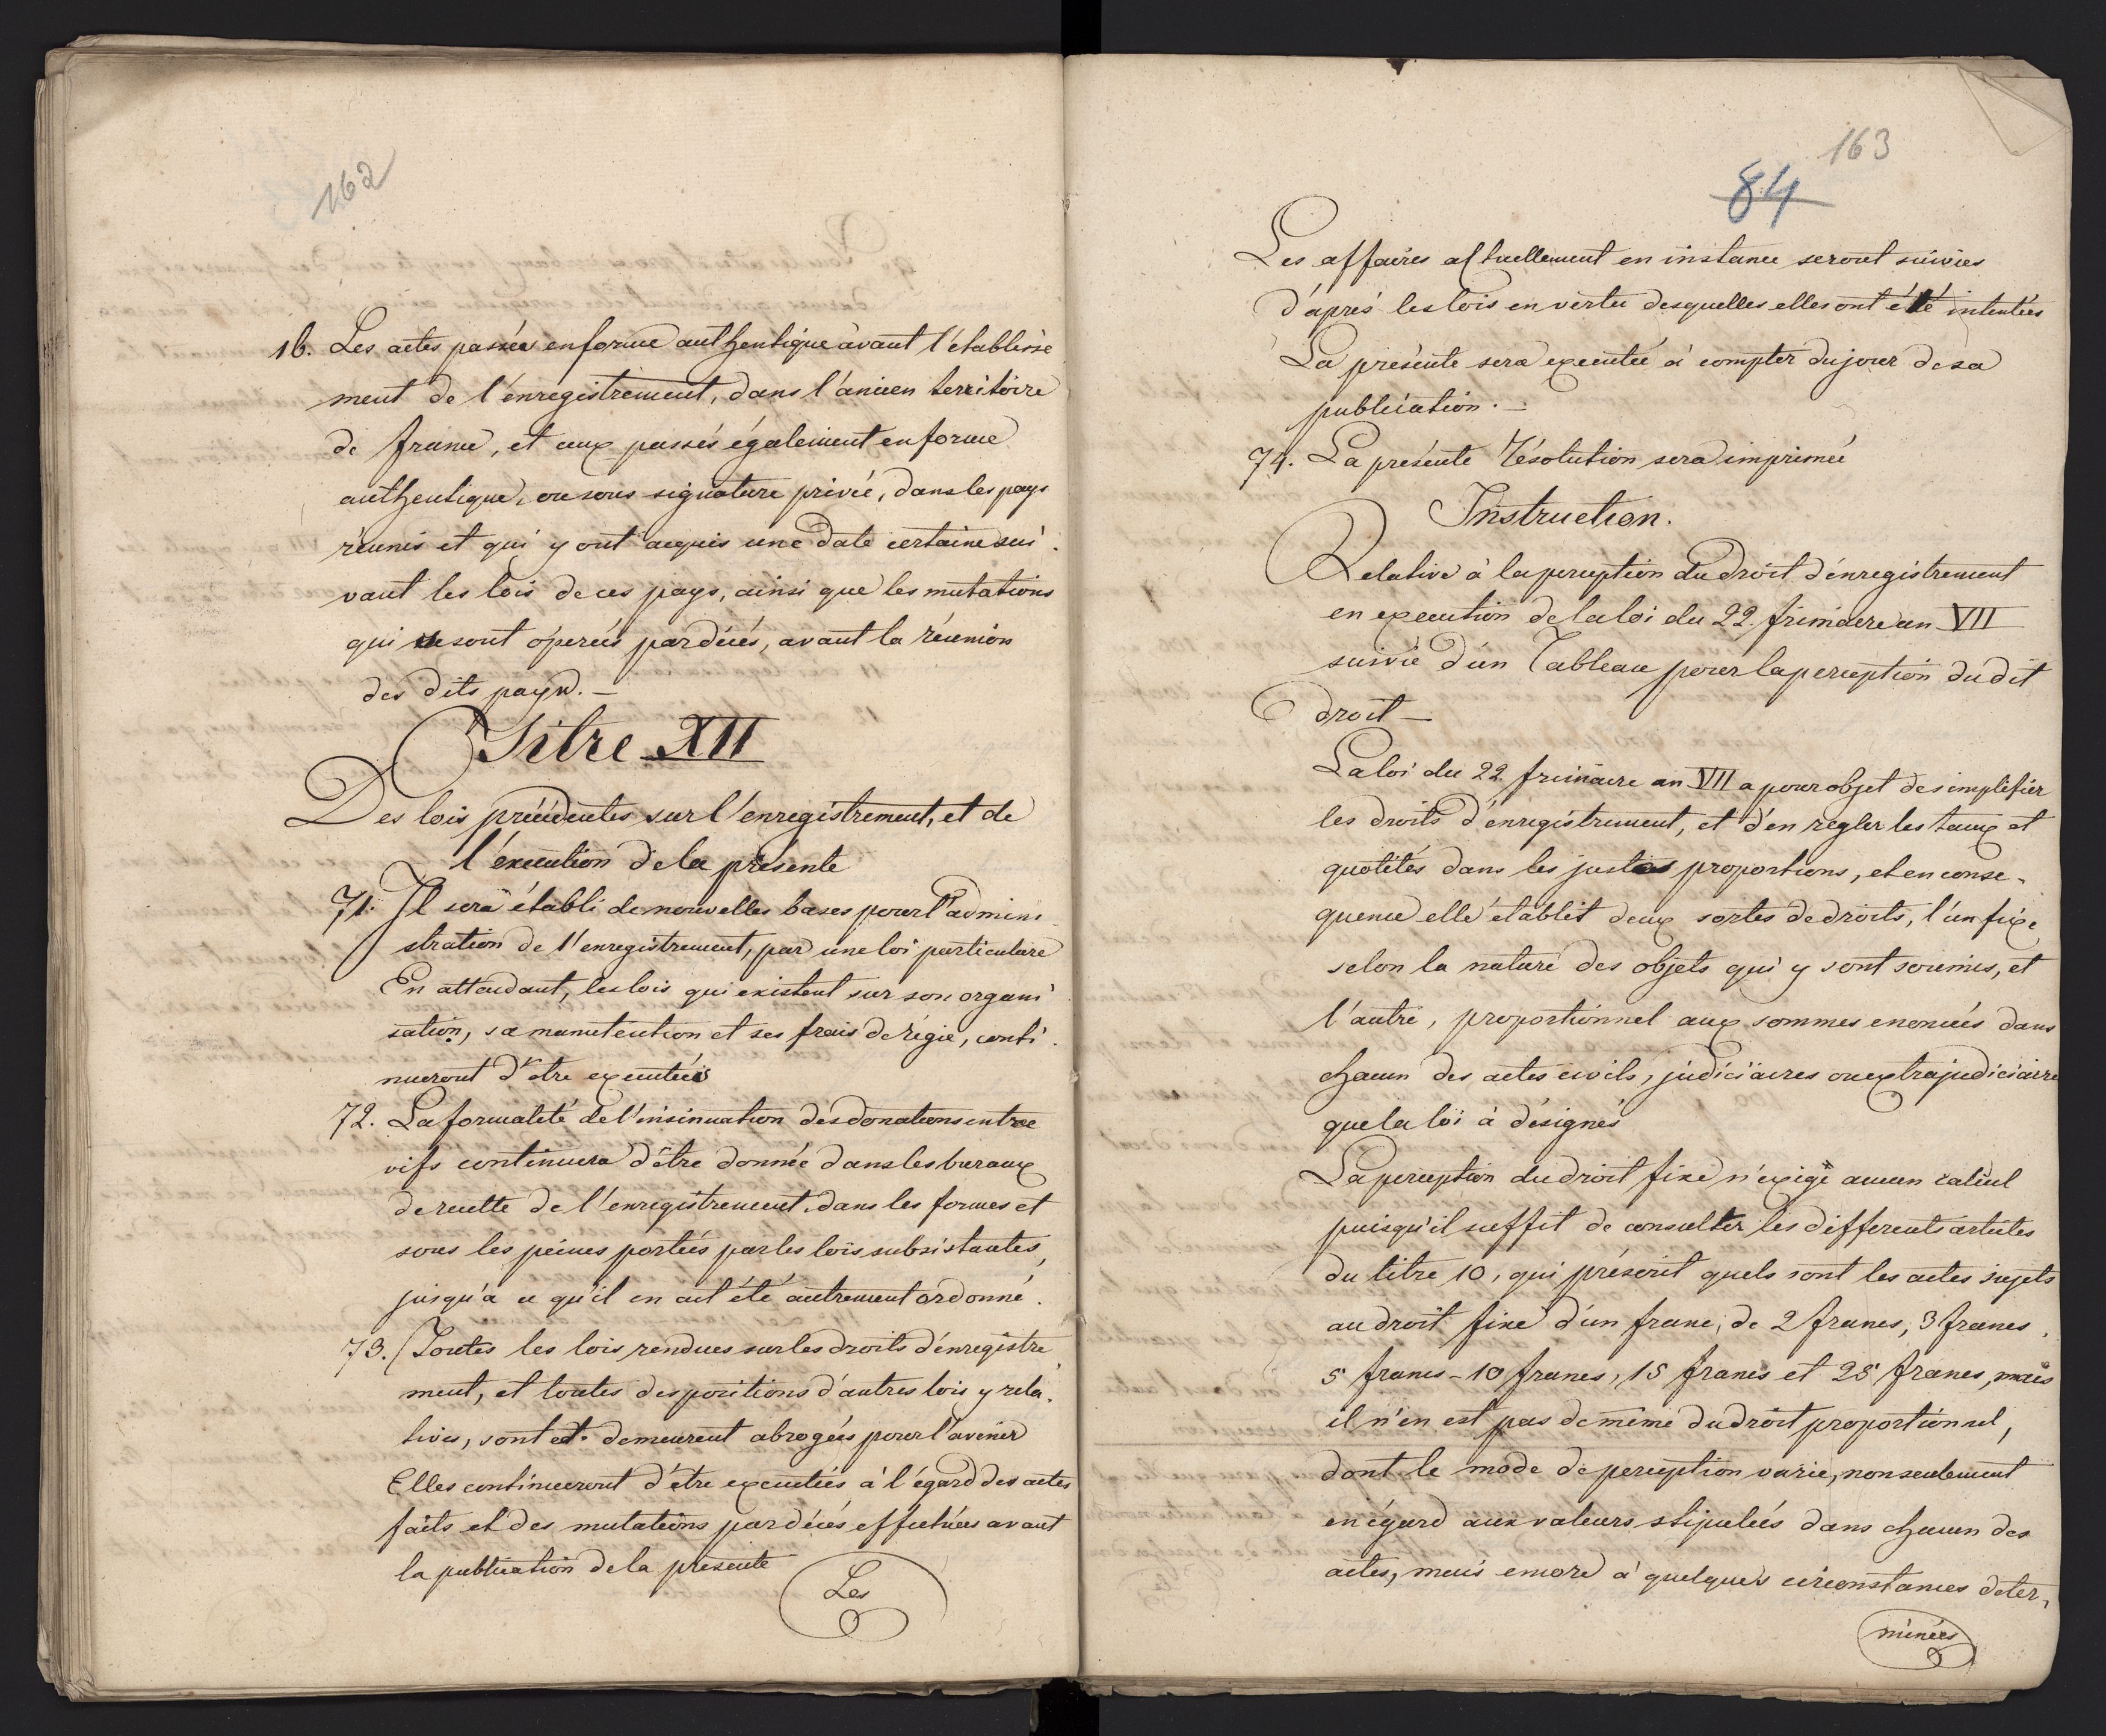 162
16. Les actes passées en forme authentique avant l'établisse
ment de l'énregistrement, dans l'ancien territoire
de france, et ceux passés également en forme
authentique, ou sous signature privée, dans les pays
réunis et qui y ont acquis une date certaine sui
vant les lois de ces pays, ainsi que les mutations
qui se sont opereés par décés, avant la réunion
des dits pays. —
Titre XII
Des lois précédentes sur l'enregistrement, et de
l'éxecution de la présente
71. Il sera établi de nouvelles bases pour l'admini
stration de l'enregistrement, par une loi particulaire
En attendant, les lois qui existent sur son organi
sation, sa manutention et ses frais de régie, conti
nueront d'etre executées
72. La formalité de l'insinuation des donations entre
vifs continuera d'être donnée dans les bureaux
de recette de l'enregistrement, dans les formes et
sous les peines portées par les lois subsistantes,
jusqu'à ce qu'il en ait été autrement ordonné.
73. Toutes les lois rendues sur les droits d'énregistre
ment, et toutes despositions d'autres lois y rela
tives, sont et demeurent abrogées pour l'avenir
Elles continueront d'être executées à l'égard des actes
faits et des mutations par décés effectuées avant
la publication de la présente
Les
163
84
Les affaires actuellement en instance seront suivies
d'aprés les lois en vertu desquelles elles ont été intentées
La présente sera executée à compter du jour de sa
publication. —
74. La présente Résolution sera imprimée
Instruction.
Relative à la perception du droit d'énregistrement
en execution de la loi du 22. frimaire an VII
suivie d'un Tableau pour la perception du dit
droit —
La loi du 22 frimaire an VII a pour objet de simplifier
les droits d'énregistrement, et d'en regler les taux et
quotités dans les justes proportions, et en conse-
quence elle établit deux sortes de droits, l'un fixe
selon la nature des objets qui y sont soumis, et
l'autre, proportionnel aux sommes enoncées dans
chacun des actes civils, judiciaires ou extrajudiciaire
que la loi à désignés
La perception du droit fixe n'exige aucun calcul
puisqu'il suffit de consulter les differents articles
du titre 10, qui présérit quels sont les actes sujets
au droit fixe d'un franc, de 2 francs, 3 francs,
5 francs - 10 francs, 15 francs et 25 francs, mais
il n'en est pas de même du droit proportionnel,
dont le mode de perception varie, non seulement
en égard aux valeurs stipulées dans chacun des
actes, mais encore à quelques circonstances deter-
minées